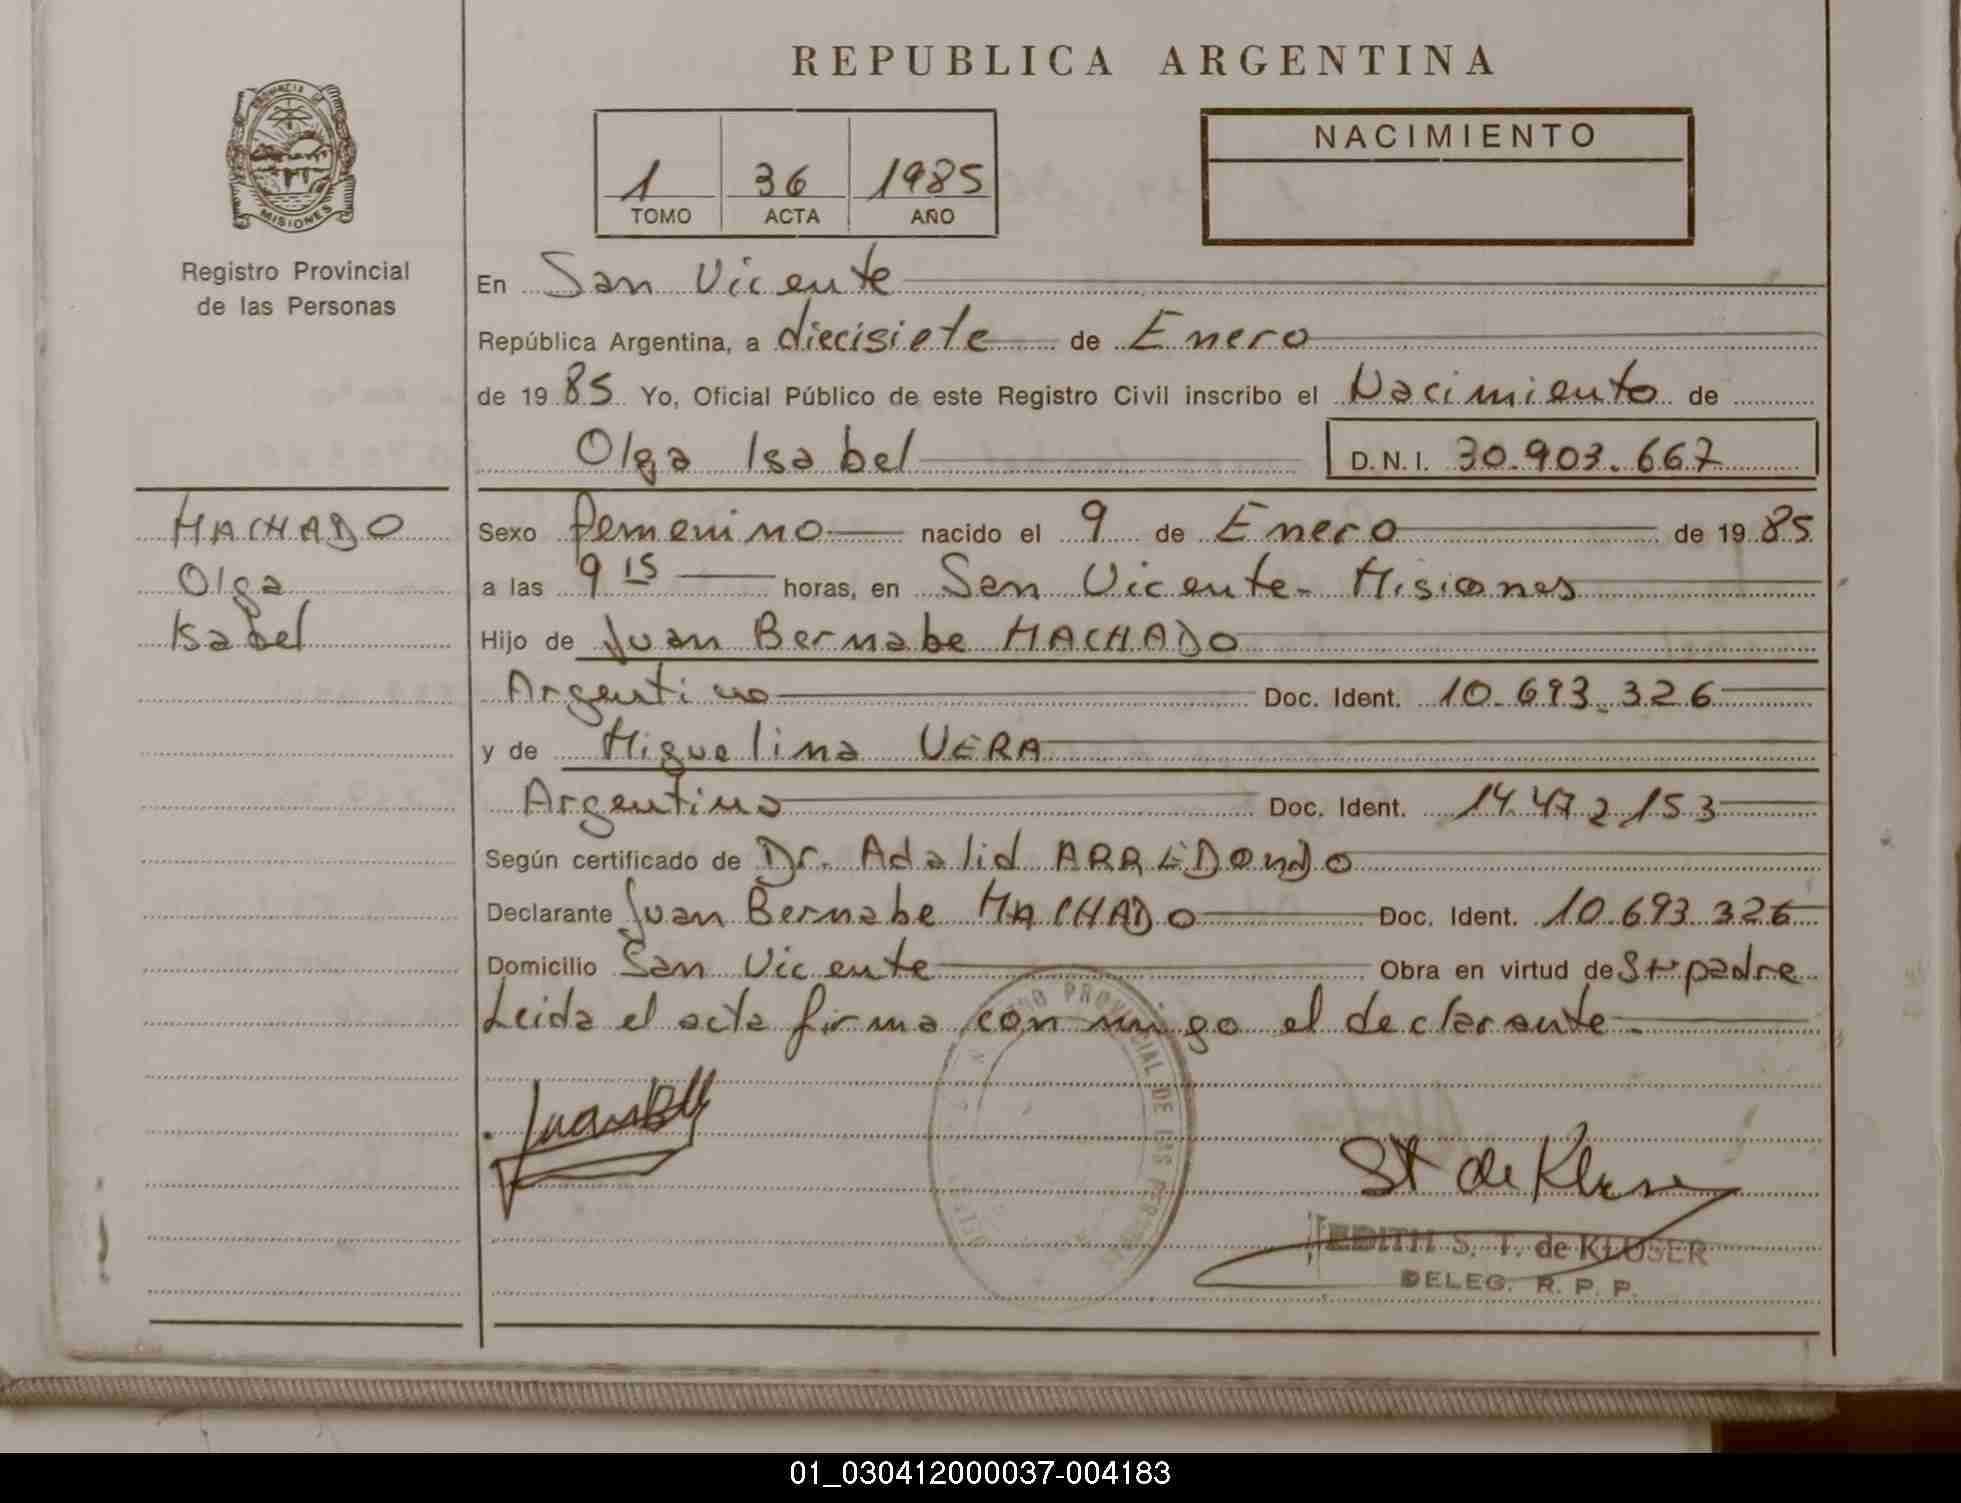 REPUBLICA ARGENTINA
PROVINCIA DE
MISIONES
Registro Provincial
de las Personas
1 36 1985
TOMO ACTA AÑO
NACIMIENTO
En San Vicente
República Argentina, a diecisiete de Enero
de 1985 Yo, Oficial Público de este Registro Civil inscribo el Nacimiento de
Olga Isabel D.N.I. 30.903.667
MACHADO
Olga
Isabel
Sexo femenino nacido el 9 de Enero de 1985
a las 9 15 horas, en San Vicente - Misiones
Hijo de Juan Bernabe MACHADO
Argentino Doc. Ident. 10.693.326
y de Miguelina VERA
Argentina Doc. Ident. 14.472.153
Según certificado de Dr. Adalid ARREDONDO
Declarante Juan Bernabe MACHADO Doc. Ident. 10.693.326
Domicilio San Vicente Obra en virtud de padre
Leida el acta firma con migo el declarante.
PROVINCIAL DE LAS
St de Kluser
EDITH S. T. de KLUSER
DELEG. R. P. P.
01_030412000037-004183